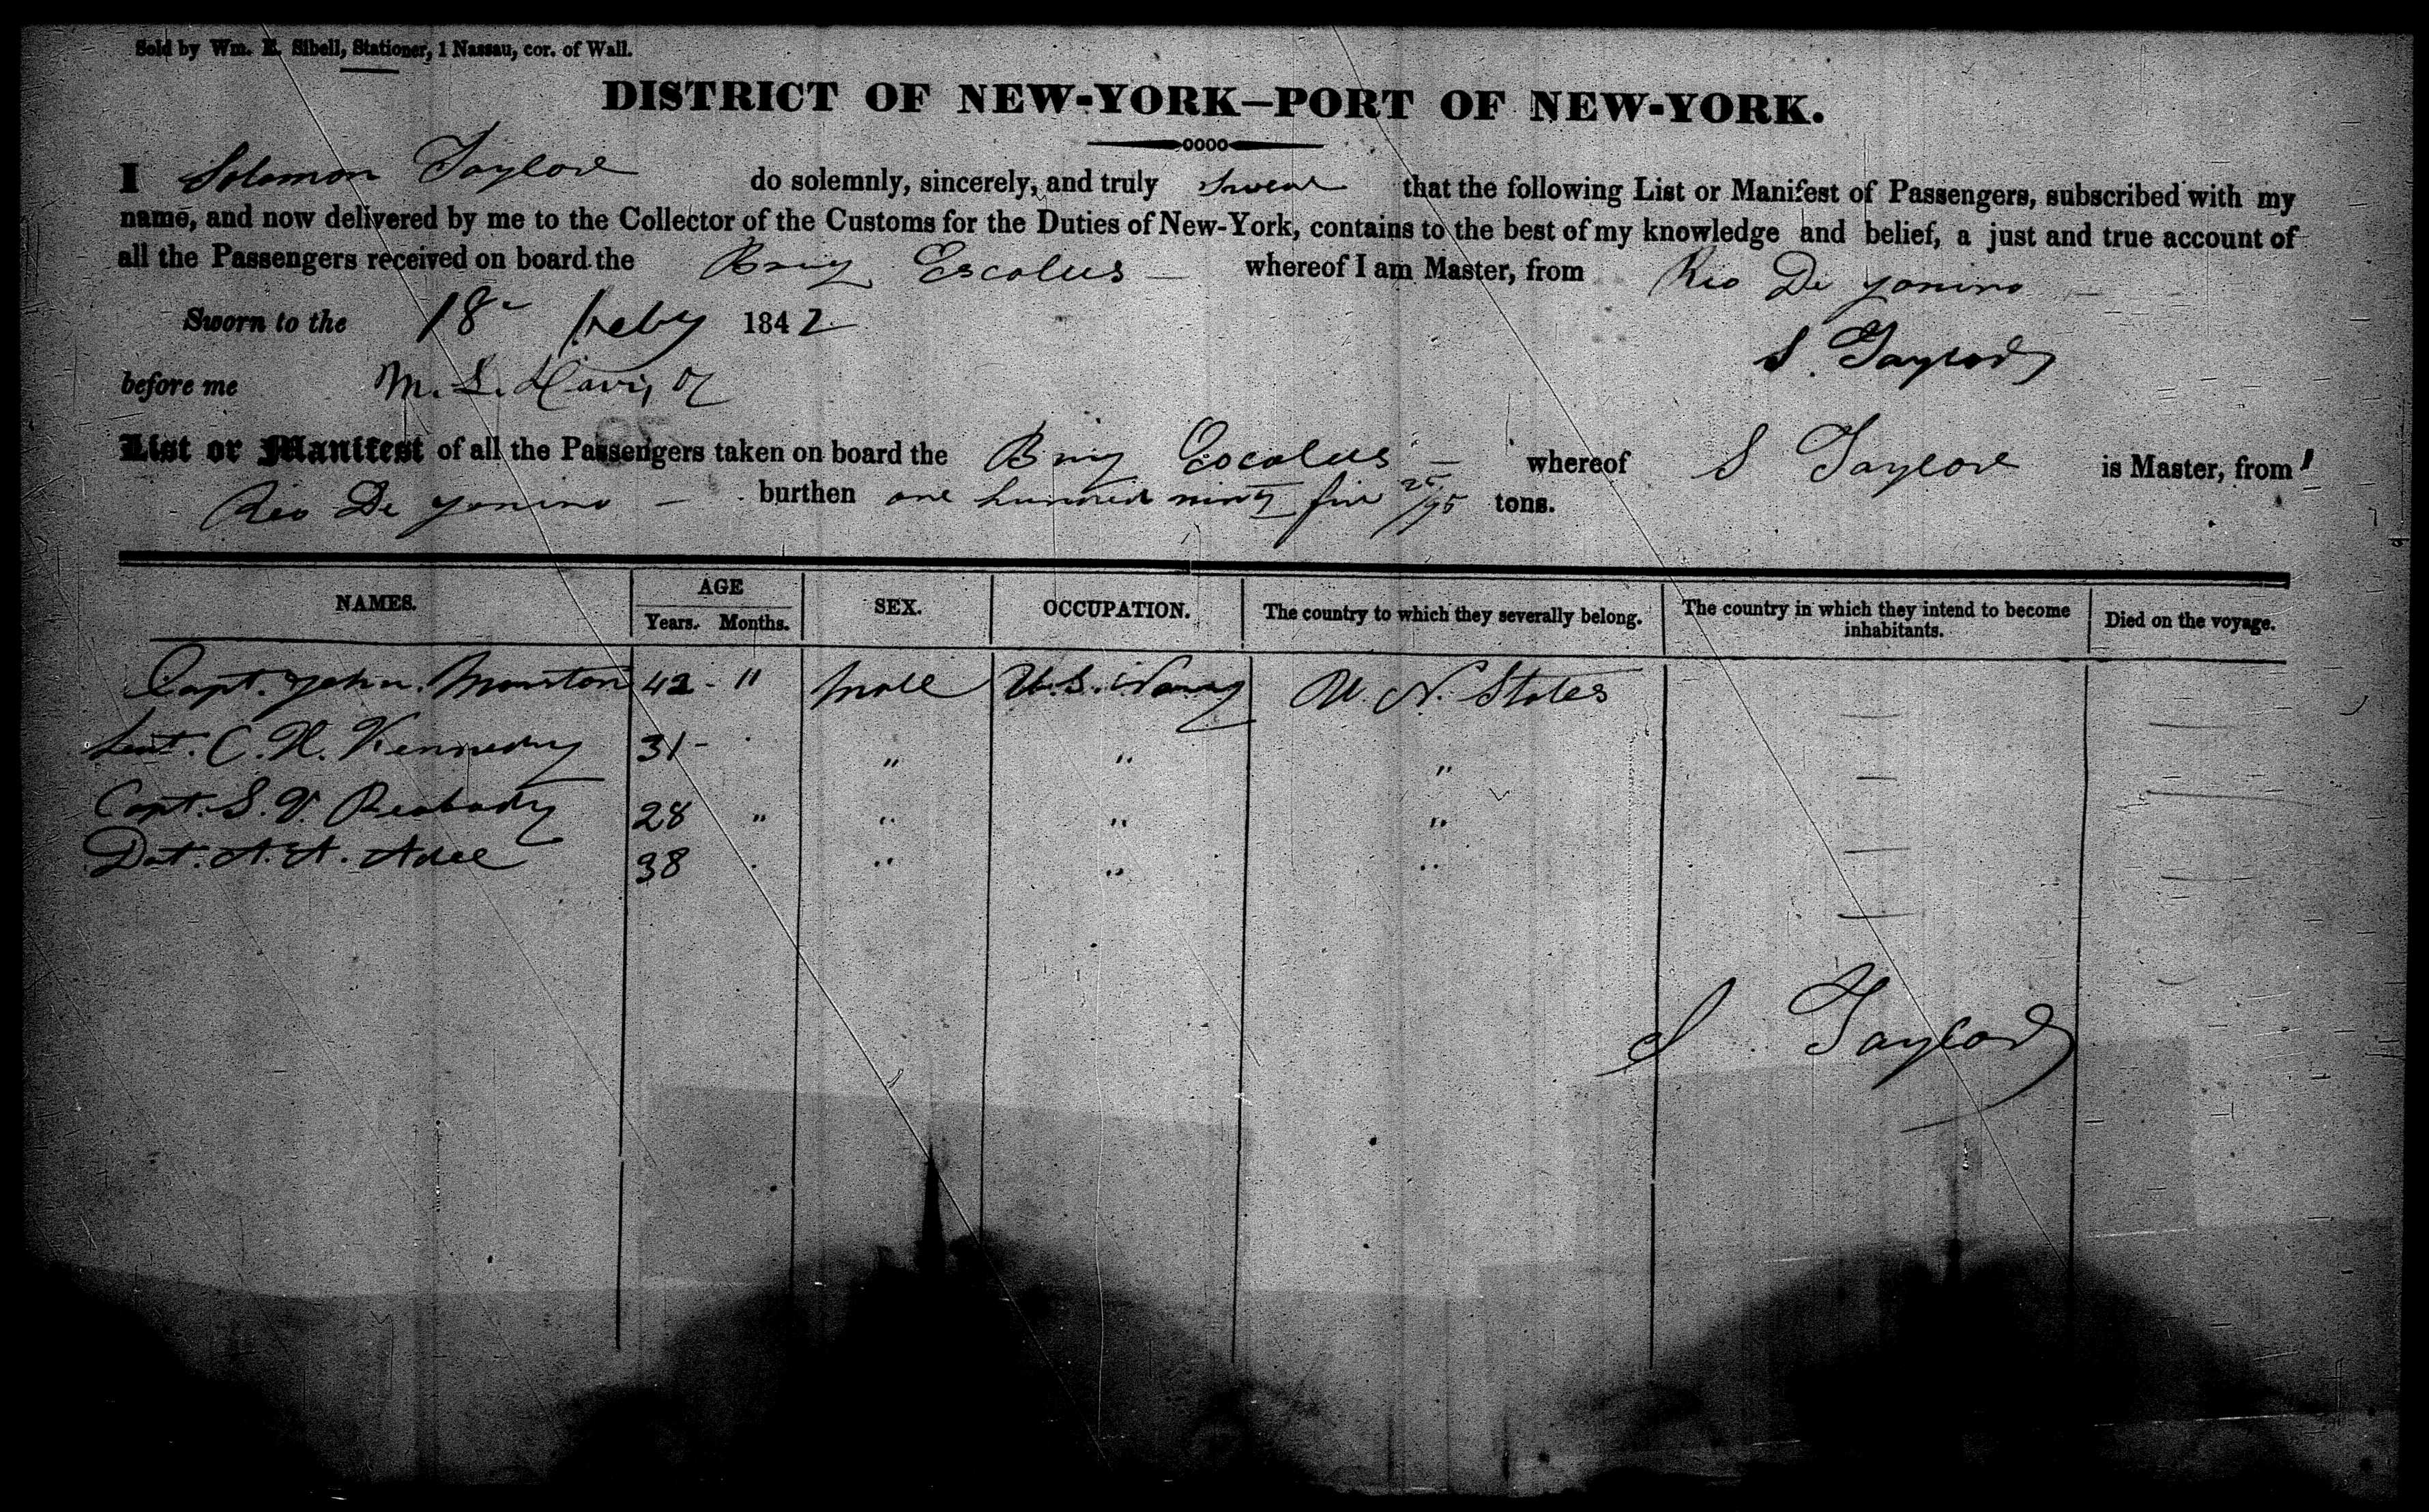 Sold by Wm. E. Sibell, Stationer, 1 Nassau, cor. of Wall.
DISTRICT OF NEW-YORK—PORT OF NEW-YORK.
I Solomon Taylor do solemnly, sincerely, and truly swear that the following List or Manifest of Passengers, subscribed with my
name, and now delivered by me to the Collector of the Customs for the Duties of New-York, contains to the best of my knowledge and belief, a just and true account of
all the Passengers received on board the Brig Escolus — whereof I am Master, from Rio De Yonino —
Sworn to the 18 Feby 1842
S. Taylor
before me M. L. Davis
List or Manifest of all the Passengers taken on board the Brig Eocolus — whereof S Taylor is Master, from
Rio De Yonino — burthen one hundred ninty five 25/95 tons.
NAMES. AGE SEX. OCCUPATION. The country to which they severally belong. The country in which they intend to become inhabitants. Died on the voyage.
Years. Months.
Capt. John. Manston 42 - " Male U.S. Navy U. N. States
Leut. C. H. Kennedy 31 - " " "
Capt. S. V. Peabody 28 " " " "
Dct. A. A. Adee 38 " " "
S Taylor